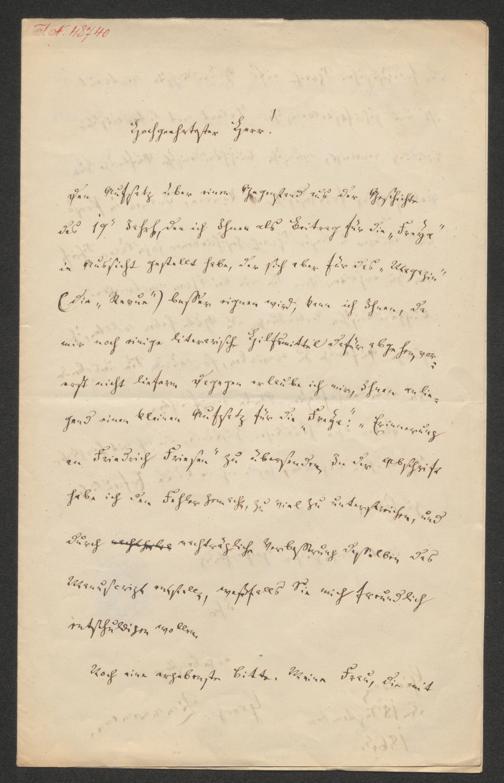 I. N. 48740
Hochgeehrtester Herr!
Den Aufsatz über einen Gegenstand aus der Geschichte
des 19ⁿ Jahrh, den ich Ihnen als Beitrag für die „Freya“
in Aussicht gestellt habe, der sich aber für das „Magazin“
(die „Revue“) besser eignen wird, kann ich Ihnen, da
mir noch einige literarische Hilfsmittel dafür abgehen, vor-
erst nicht liefern. Dagegen erlaube ich mir, Ihnen anlie-
gend einen kleinen Aufsatz für die „Freya“: „Erinnerung
an Friedrich Friesen“ zu übersenden. In der Abschrift
habe ich den Fehler gemacht, zu viel zu unterstreichen, und
durch nachträgliche Verbesserung desselben das
Manuscript entstellt, weßfalls Sie mich freundlich
entschuldigen wollen.
Noch eine ergebenste Bitte. Meine Frau, die mit